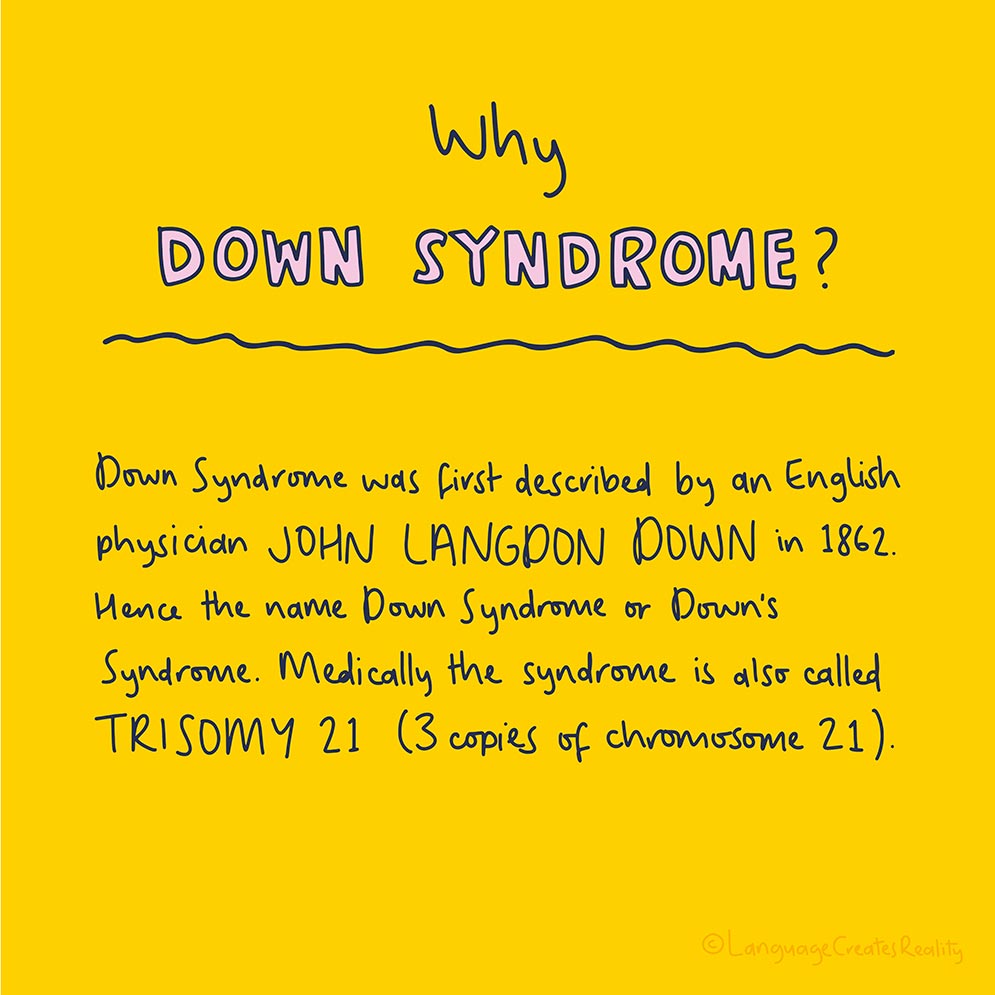 Why
DOWN SYNDROME?
Down Syndrome was first described by an English
physician JOHN LANGDON DOWN in 1862.
Hence the name Down Syndrome or Down's
Syndrome. Medically the syndrome is also called
TRISOMY 21 (3 copies of chromosome 21).
©LanguageCreatesReality